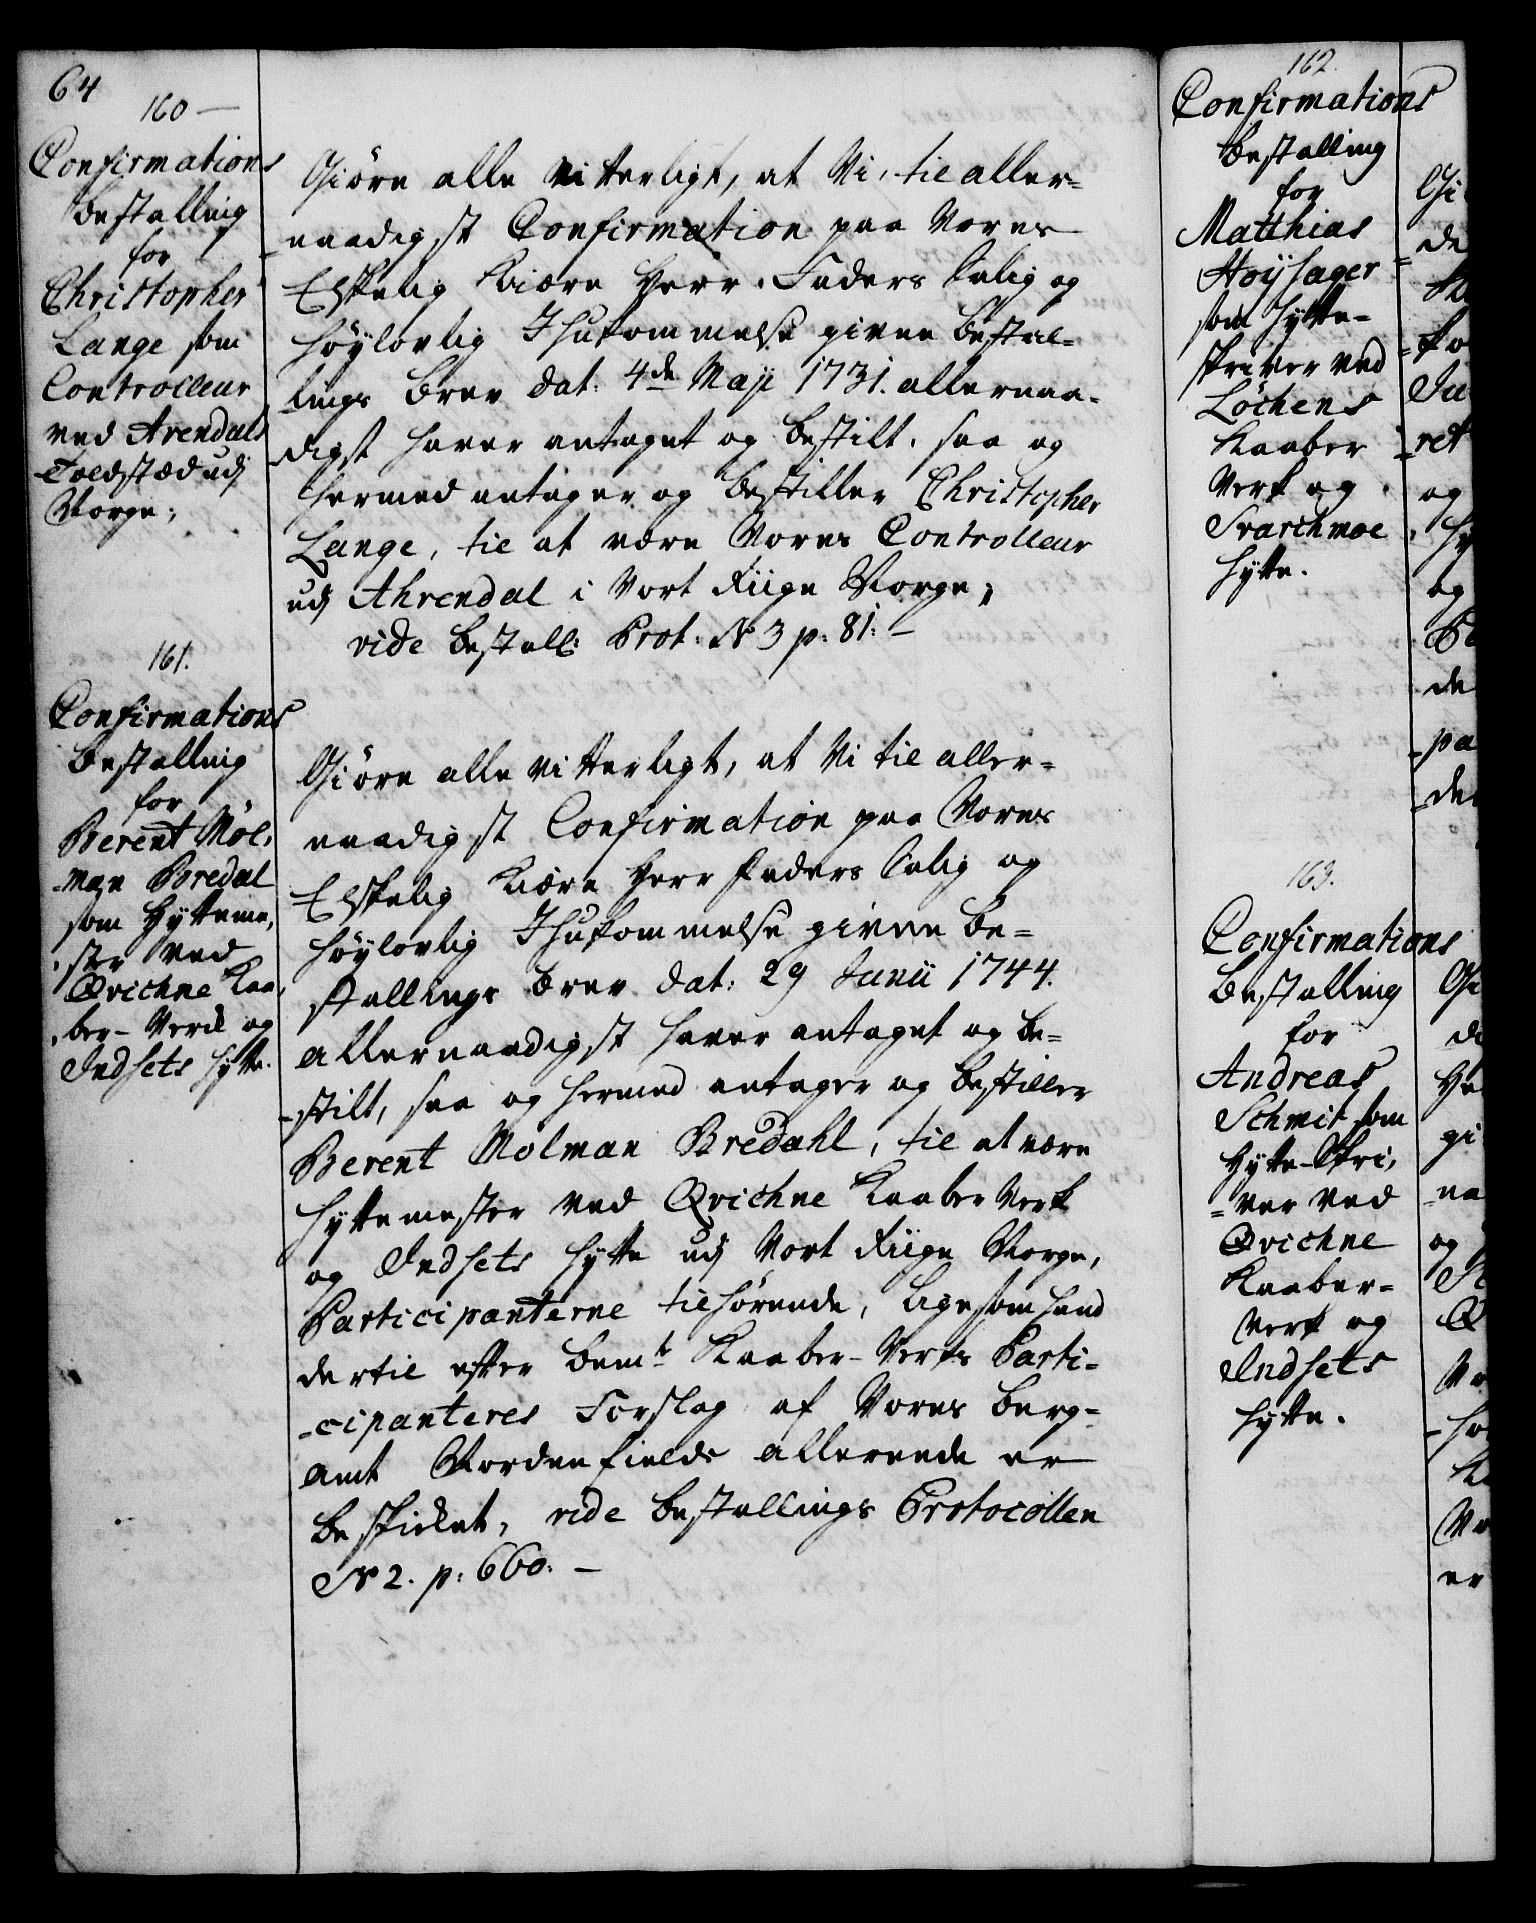 64
160 —
Confirmations
Bestalling
for
Christopher
Lange som
Controlleur
ved Arendals
Toldstæd udj
Norge;
Giöre alle vitterligt, at Vi, til aller=
naadigst Confirmation paa Vores
Elskelig Kiære Herr Faders Salig og
Höylovlig Ihukommelse givne Bestal=
lings Brev dat: 4de Maji 1731. allernaa=
digst haver antaget og bestilt, saa og
hermed antager og bestiller Christopher
Lange, til at være Vores Controlleur
udj Ahrendal i Vort Riige Norge;
vide Bestall: Prot: No 3 p: 81: —
161.
Confirmations
Bestalling
for
Berent Mol=
man Bredal
som Hytteme=
ster ved
Qvichne Kaa=
ber-Verck og
Indsets Hytte.
Giöre alle vitterligt, at Vi til aller=
naadigst Confirmation paa Vores
Elskelig Kiære Herr Faders Salig og
Höylovlig Ihukommelse givne Be=
stallings Brev dat: 29 Junii 1744.
allernaadigst haver antaget og be=
stilt, saa og hermed antager og bestiller
Berent Molman Bredahl, til at være
Hyttemester ved Qvichne Kaaber Verk
og Indsets Hytte udj Vort Riige Norge,
Participanterne tilhörende, ligesom hand
dertil efter bemte Kaaber-Verks Parti=
cipanteres Forslag af Vores Berg=
Amt Nordenfields allerede er
beskicket, vide Bestallings Protocollen
No 2. p: 660: —
162.
Confirmations
Bestalling
for
Matthias
Hoysager
som Hytte=
skriver ved
Löchens
Kaaber
Verk og
Svarchmoe
Hytte.
163.
Confirmations
Bestalling
for
Andreas
Schmit som
Hytte-Skri=
ver ved
Qvichne
Kaaber=
Verk og
Indsets
Hytte.